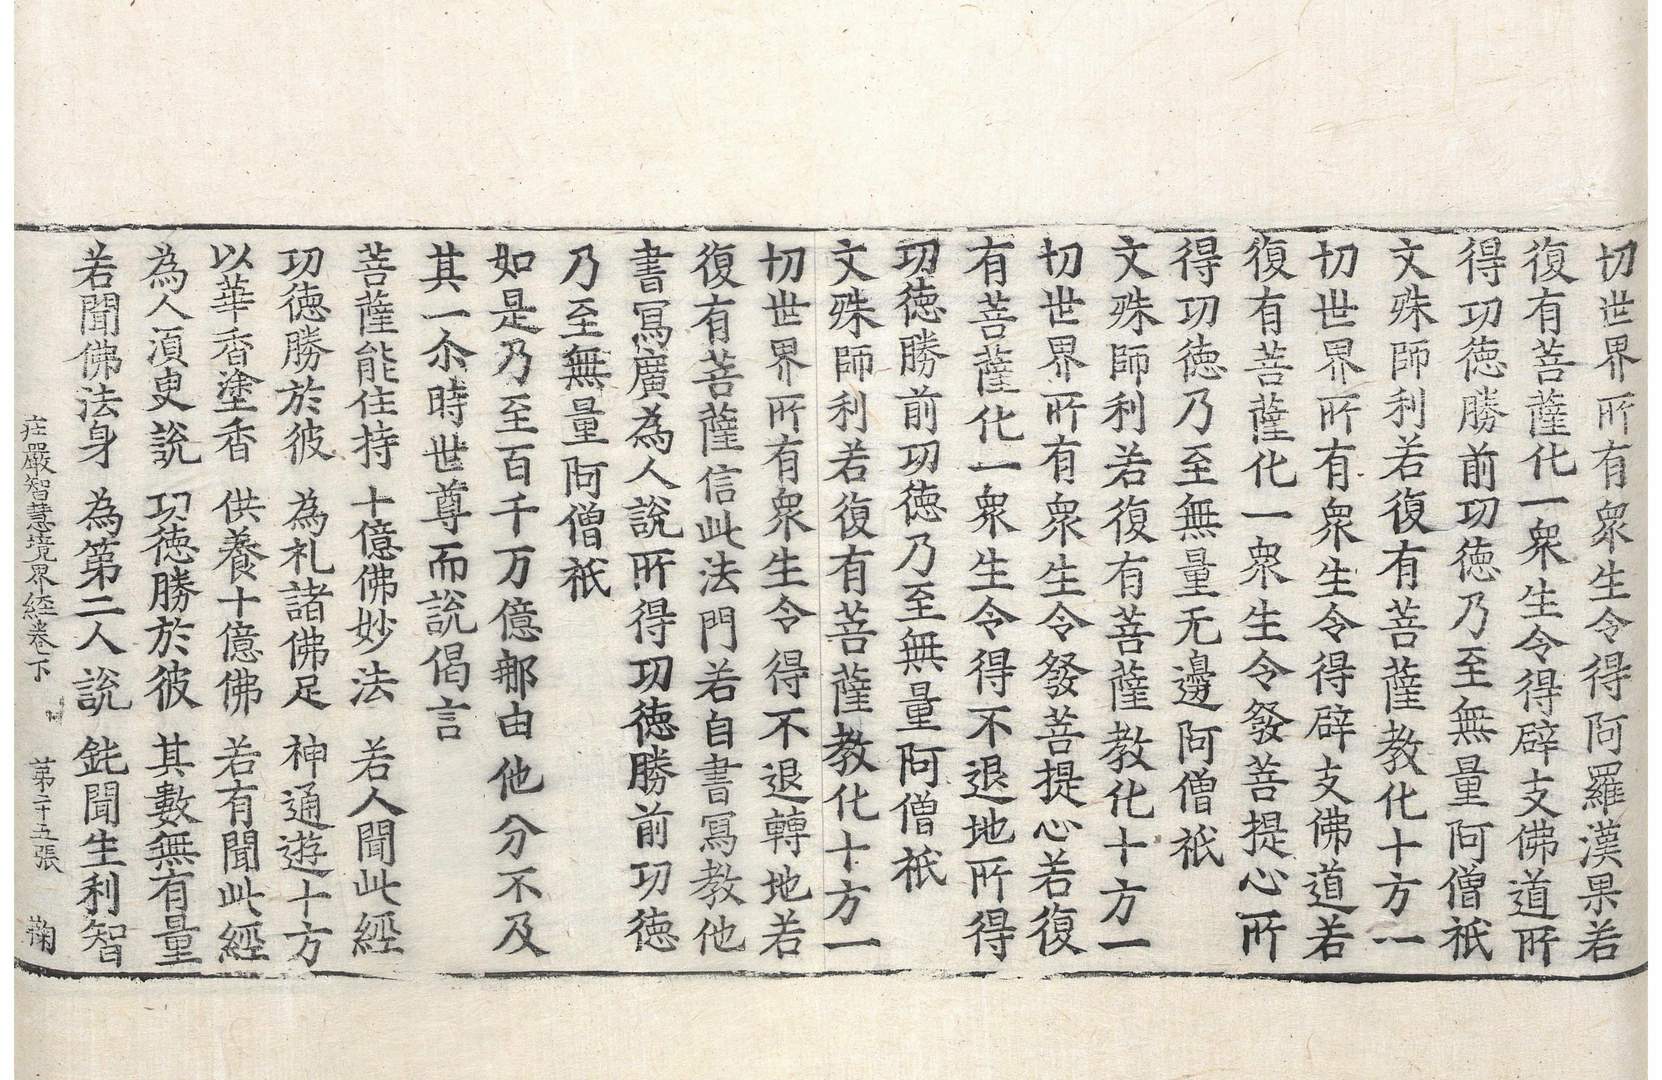 切世界所有衆生令得阿羅漢果若
復有菩薩化一衆生令得辟支佛道所
得功徳勝前功徳乃至無量阿僧祇
文殊師利若復有菩薩教化十方一
切世界所有衆生令得辟支佛道若
復有菩薩化一衆生令發菩提心所
得功徳乃至無量无邊阿僧祇
文殊師利若復有菩薩教化十方一
切世界所有衆生令發菩提心若復
有菩薩化一衆生令得不退地所得
功徳勝前功徳乃至無量阿僧祇
文殊師利若復有菩薩教化十方一
切世界所有衆生令得不退轉地若
復有菩薩信此法門若自書寫教他
書寫廣為人說所得功徳勝前功徳
乃至無量阿僧祇
如是乃至百千万億那由他分不及
其一尒時世尊而說偈言
菩薩能住持 十億佛妙法 若人聞此經
功徳勝於彼 為礼諸佛足 神通遊十方
以華香塗香 供養十億佛 若有聞此經
為人湏臾說 功徳勝於彼 其數無有量
若聞佛法身 為第二人說 鈍聞生利智
庄嚴智慧境界経卷下 苐二十五張 鞠